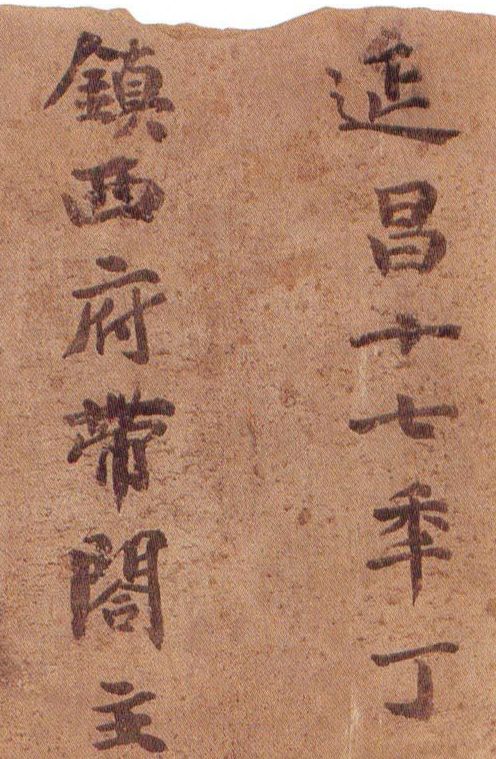 延昌十七秊丁
鎮西府帶閤主